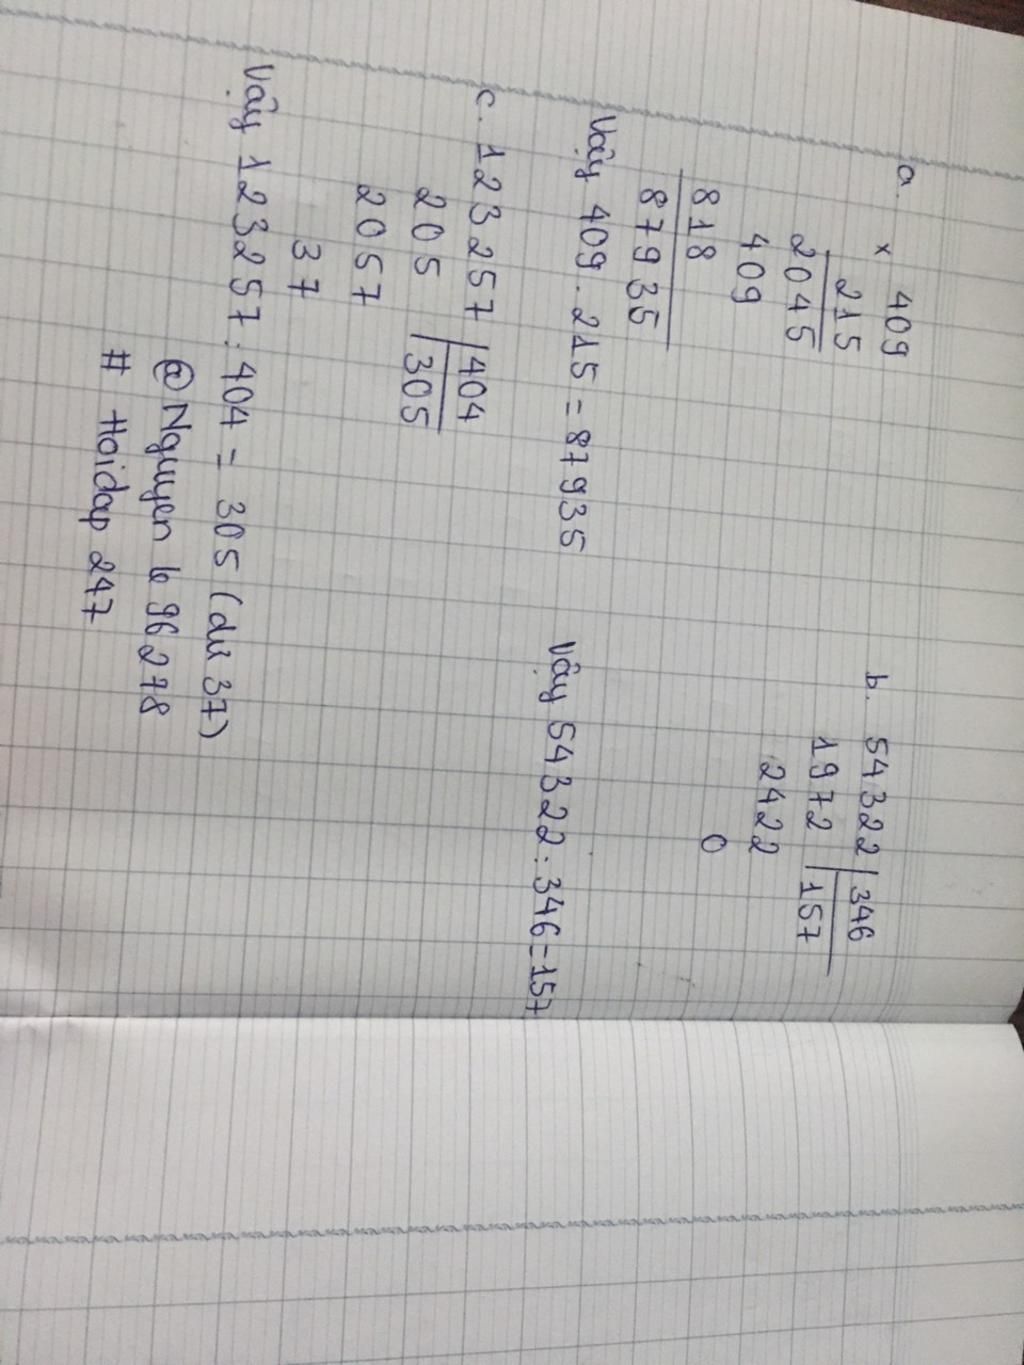 a. × 409
215
2045
409
818
87935
Vậy 409 . 215 = 87935
b. 54322 | 346
1972 | 157
2422
0
Vậy 54322 : 346 = 157
c. 123257 | 404
205 | 305
2057
37
Vậy 123257 : 404 = 305 (dư 37)
@Nguyen le 96278
# Hoidap 247